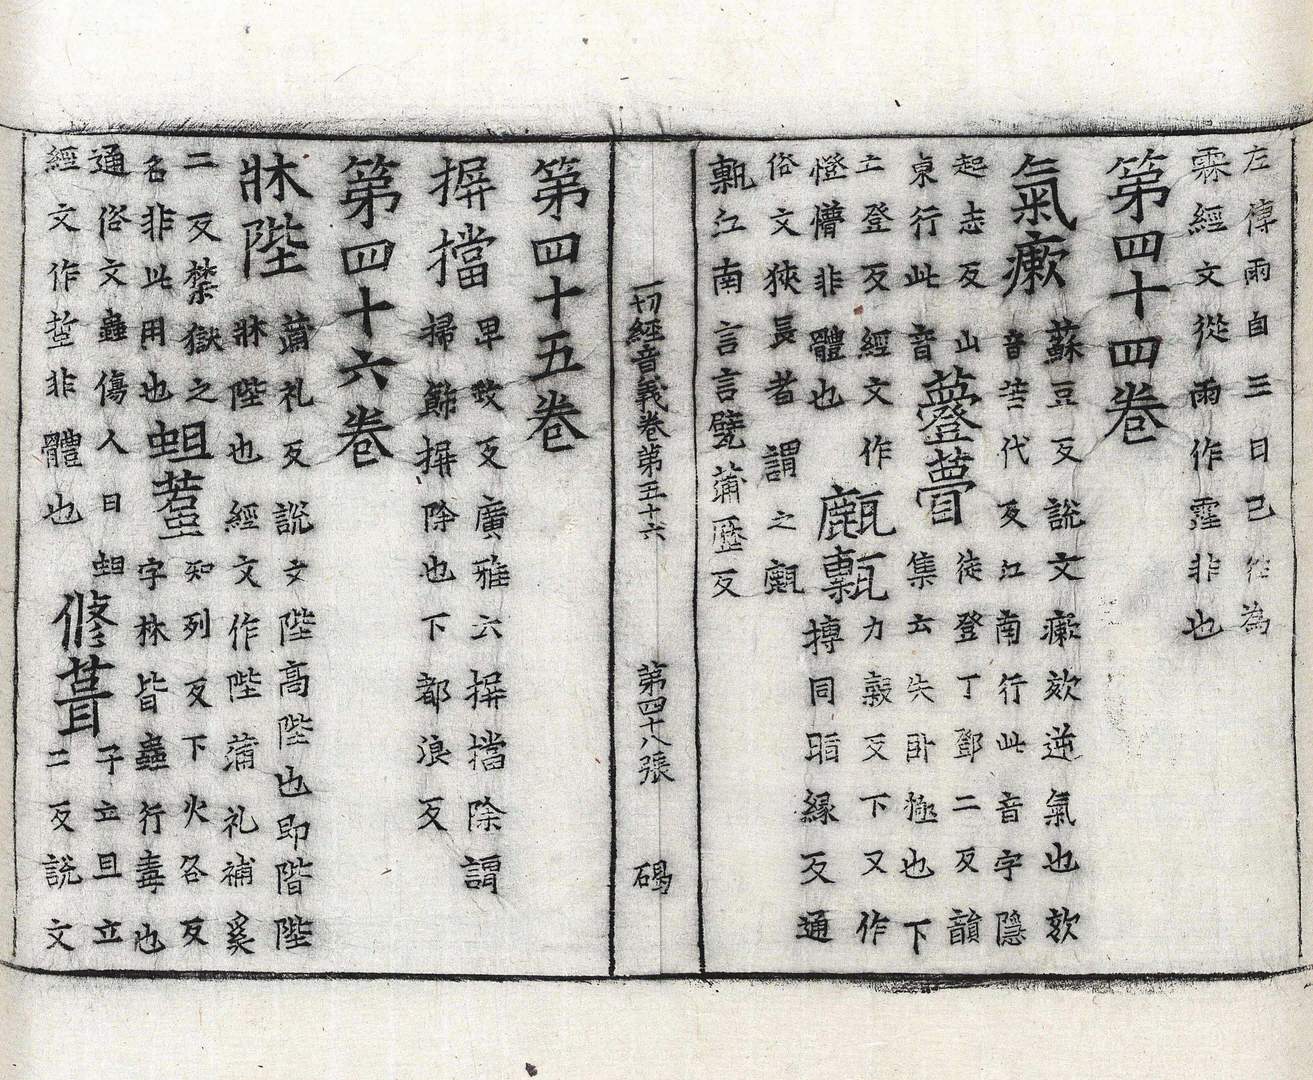 左傳雨自三日已往為
霖經文從雨作霪非也
第四十四卷
氣瘶
蘇豆反說文瘶欬逆氣也欬
音苦代反江南行此音字隱
起志反山
東行此音
薹瞢
徒登丁鄧二反韻
集云失臥極也下
亡登反經文作
憕懵非體也
甂甎
力穀反下又作
摶同脂緣反通
俗文狹長者謂之甂
甎江南言言甓蒲歷反
一切經音義卷第五十六
第四十八張
碣
第四十五卷
摒擋
卑政反廣雅云摒擋除謂
掃飾摒除也下都浪反
第四十六卷
牀陛
蒲礼反說文陛高陛也即階陛
牀陛也經文作陛蒲礼補奚
二反禁獄之
名非此用也
蛆蠚
知列反下火各反
字林皆蟲行毒也
通俗文蟲傷人曰蛆
經文作蜇非體也
修葺
子立且立
二反說文